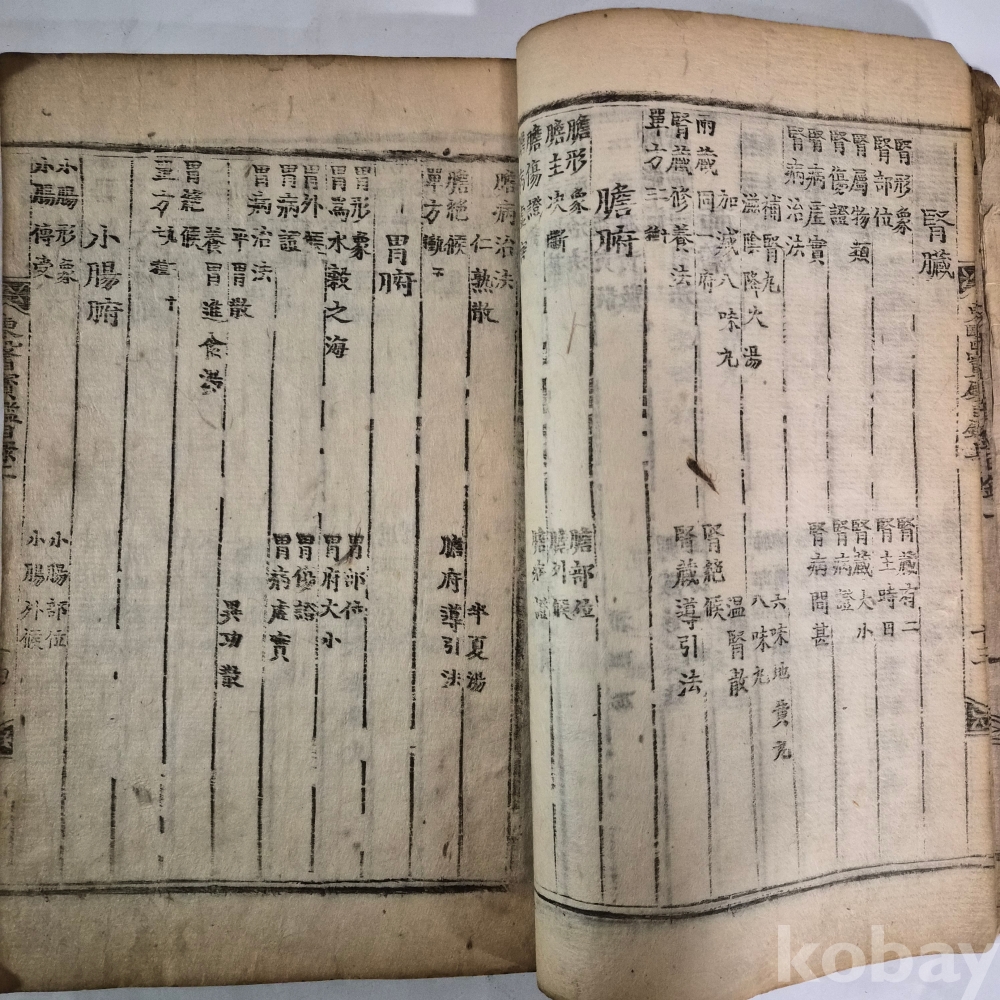 腎臟
腎形象 腎藏有二
腎部位 腎主時日
腎屬物類 腎藏大小
腎傷證 腎病證
腎病虛實 腎病間甚
腎病治法
補腎丸 六味地黃丸
滋陰降火湯 八味丸
加減八味丸 溫腎散
兩藏同一府 腎絕候
腎藏修養法 腎藏導引法
單方
膽腑
膽形象 膽部位
膽主決斷 膽外候
膽傷證 膽病證
膽病治法
仁熟散 半夏湯
膽絕候 膽府導引法
單方
胃腑
胃形象 胃部位
胃爲水穀之海 胃府大小
胃外候 胃傷證
胃病證 胃病虛實
胃病治法
平胃散 異功散
養胃進食湯
胃絕候
單方
小腸腑
小腸形象 小腸部位
小腸傳受 小腸外候
東醫寶鑑目錄
kobay